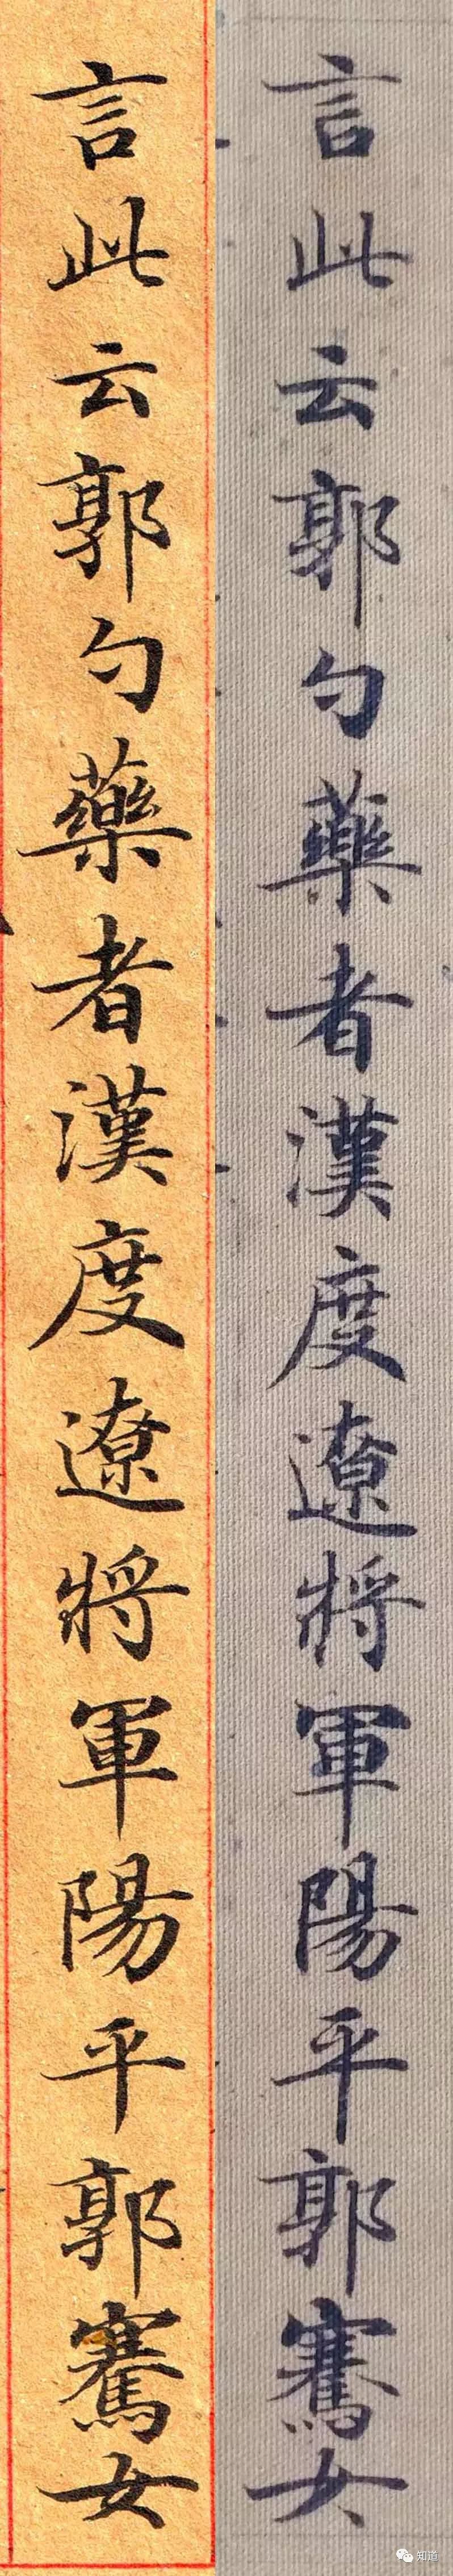 言此云郭勺藥者漢度遼將軍陽平郭騫女
言此云郭勺藥者漢度遼將軍陽平郭騫女
知道